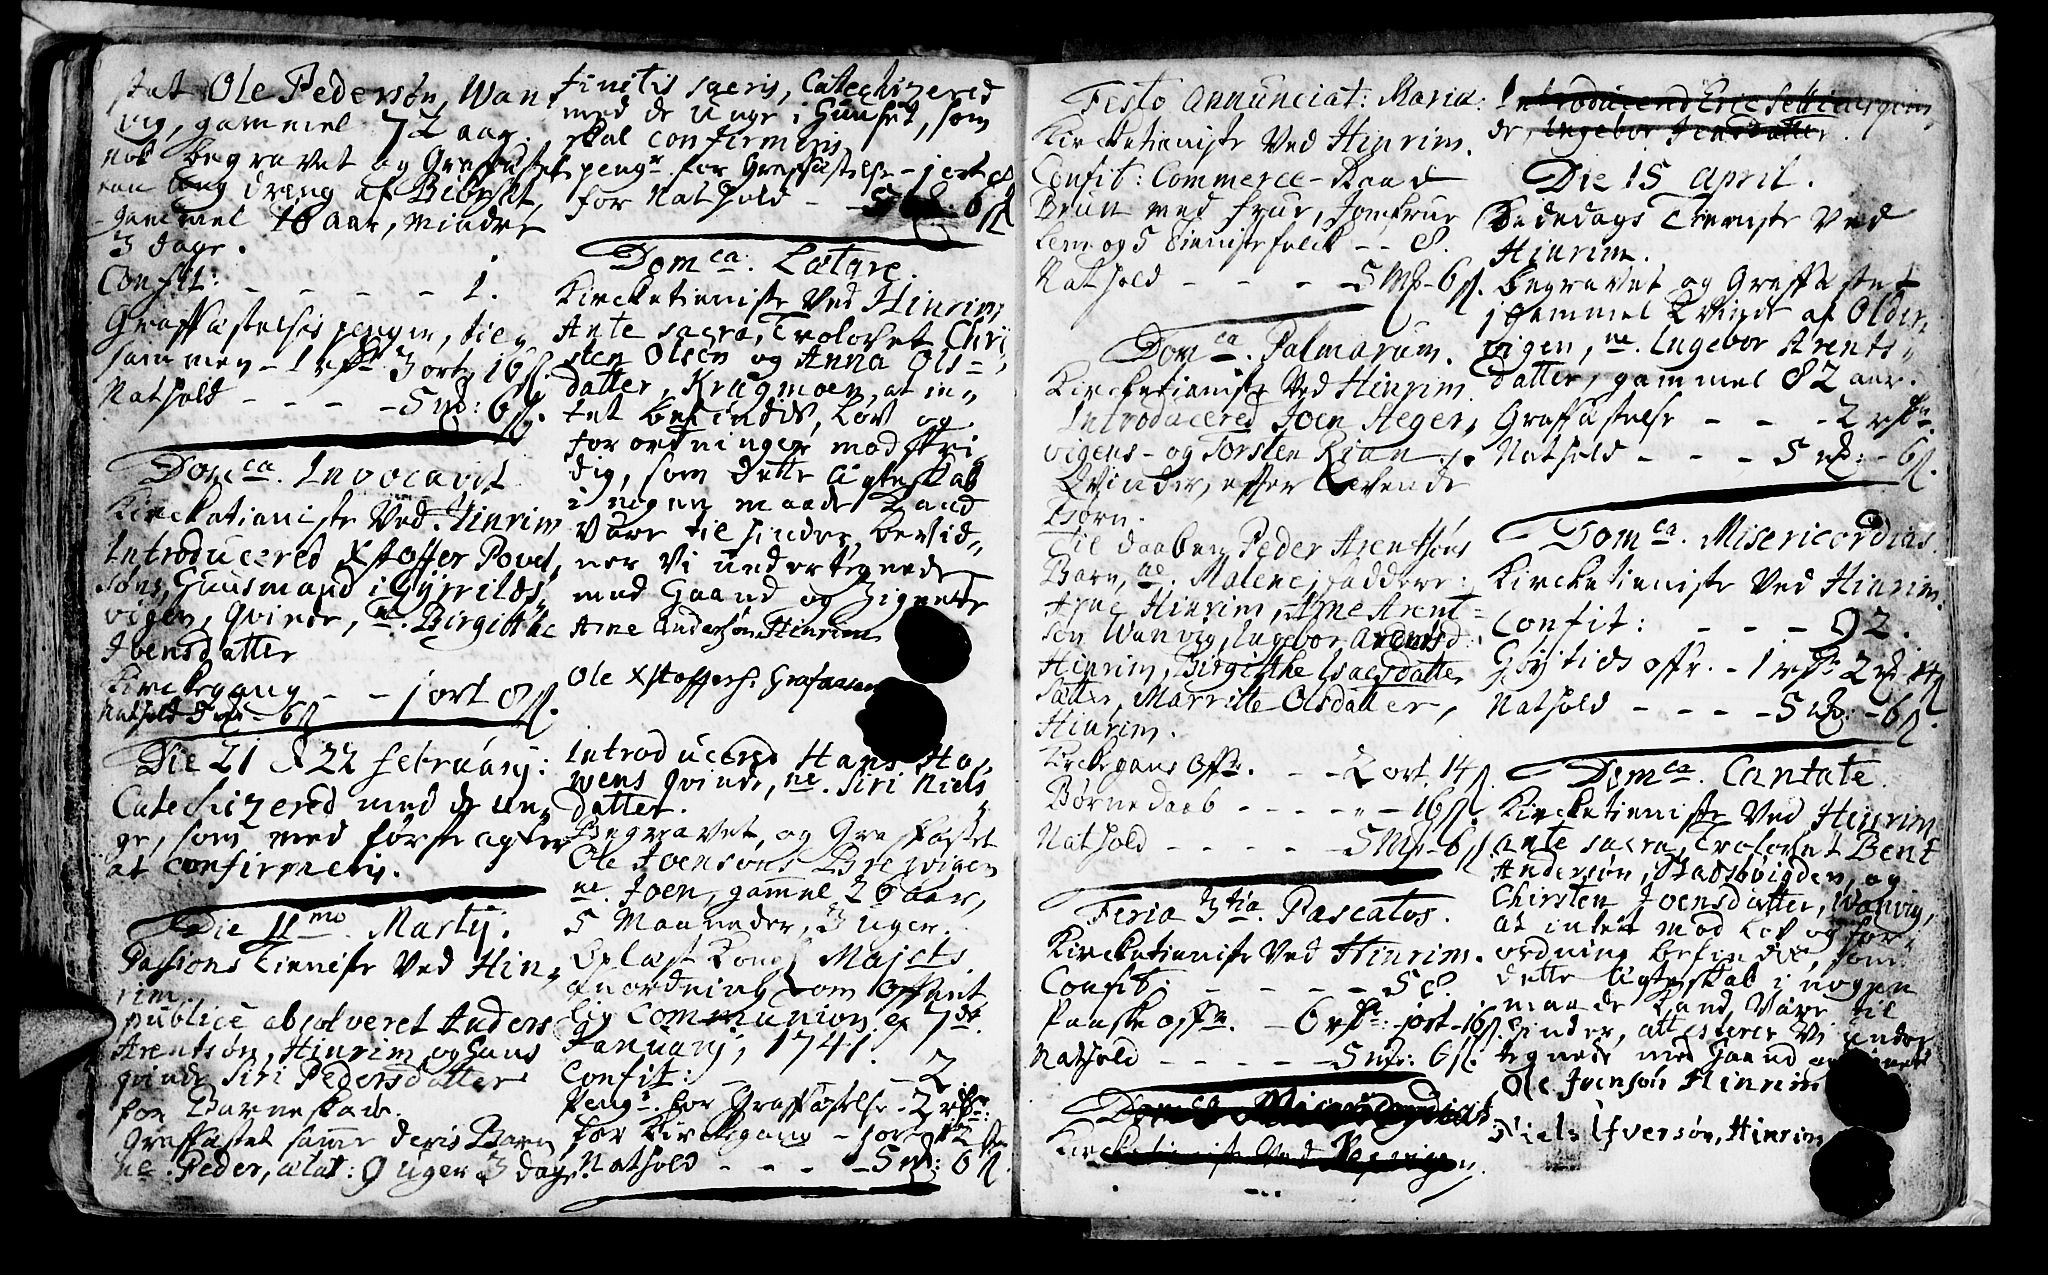 stet Ole Pedersøn, Wan,
vig, gammel 72 aar.
nok begravet og Graffästet
een ung dreng af Bebostet,
gammel 18 aar, mindre
3 dage.
Confit: - - - - - 1.
Graffästelsis penger, til,
sammen - 1 rdr 3 ort 16 s.
Nathold - - - - 5 mk: 6 s.
Domca. Invocavit
Kircketieniste Ved Hinrim
Introducered Xstoffer Povel,
søns, Huusmand i Gyrrilds,
vigen, Qvinde, ne. Birgitthe
Ibensdatter
Kirckegang - - 1 ort 8 s.
Nathold 5 mk - 6 s
Die 21 & 22 februarij:
Catechizered med de un,
ge, som med første agter
at confirmeris.
Die 11mo Martij.
Passions tieniste Ved Hin,
rim.
publicè absolveret Anders
Arentsøn, Hinrim og hans
qvinde Siri Pedersdatter
for Barneskam.
Graffästet samme deris Barn
ne. Peder, ætat: 9 uger 3 dage.
finitis sacris, Catechizered
med de Unge i Huuset, som
skal confirmeris
peng. for Graffästelse - 1 ort
for Nathold - - 5 mk. 6 s
Domca. Lætare.
Kircketieniste Ved Hinrim
Ante sacra, Trolovet Chri
sten Olsen og Anna Ols=
datter, Kragmoen, at in,
tet befindis, Lov og
forordninger mod stri,
dig, som dette Ägteskab
i nogen maade Kand
Väre til hinder, bevid,
ner Vi undertegnede
med Haand og Zignete
Arne Andersøn Hinrim
Ole Xstoffers. Grafaasen
Introducered Hans Ha,
wens qvinde, ne. Siri Niels
datter.
Begravet, og Graffästet
Ole Joensøns Breivigen
ne. Joen, gamel 26 aar,
5 Maaneder, 3 uger.
Oplæst Kong Majets.
anordning om Offent
lig Communion af 7de
Januarij, 1741.
Confit: - - - - 2
Peng. for Graffästelse - 2 rdr:
for Kirckegang - 1 ort
Nathold - - - - 5 mk: 6 s.
Festo Annunciat: Mariæ:
Kircketieniste Ved Hinrim.
Confit: Commerce-Raad
Brun med frue, Jomfrue
Lem og 5 tienistefolck - - 8.
Nathold - - - - 5 Mk - 6 s.
Domca. Palmarum.
Kircketieniste Ved Hinrim.
Introducered Joen Heger,
vigens - og Torsten Rian
Qvinder, efter levende
Børn.
Til daaben Peder Arentsøns
Barn, ne. Malene, faddere:
Arne Hinrim, Arne Arent=
søn Wanvig, Ingebor Arentsd:
Hinrim, Birgitthe Isacsdatter
Sætter, Marritte Olsdatter,
Hinrim.
Kirckegans Offr. - - 2 ort. 14 s.
Børnedaab - - - - - 16 s.
Nathold - - - - - 5 Mk - 6 s.
Feria 3tia. Pascatos.
Kircketieniste Ved Hinrim.
Confit: - - - - - 58.
Paaske offr. - 6 rdr: - 1 ort - 16 s.
Nathold - - - - - 5 mk: 6 s.
Domca Misericordias
Kircketieniste Ved
Introducered Eric
de, Ingebor Jensdatter.
Die 15 April.
Bededags Tieniste Ved
Hinrim.
begravet og Graffästet
1 gammel Qvinde af Olden
vigen, ne. Ingebor Arents,
datter, gammel 82 aar.
Graffästelse - - - 2 rdr.
Nathold - - - - 5 mk: - 6 s.
Domca. Misericordias.
Kircketieniste Ved Hinrim.
Confit: - - - - 92.
Høytids offr. - 1 rdr 2 mk 14 s
Nathold - - - - 5 mk: - 6 s.
Domca. Cantate.
Kircketieniste Ved Hinrim
ante sacra, Trolovet Bent
Andersøn, Stadsbøigden, og
Chirsten Joensdatter, Wanvig,
at intet mod Lov og for,
ordning befindis, som
dette Ägteskab i nogen
maade Kand Väre til
hinder, attesterer Vi under
tegnede med Haand og
Ole Jvensøn Hinrim
Niels Ifversøn, Hinrim